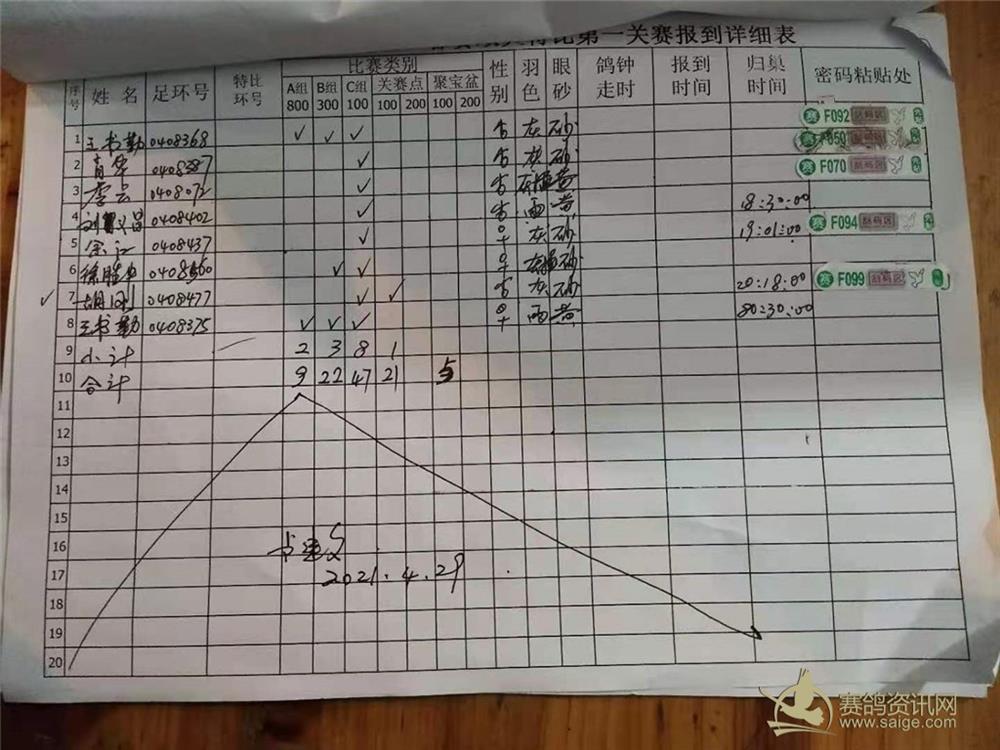 第一关赛报到详细表
序号 姓名 足环号 特比环号 比赛类别 性别 羽色 眼砂 鸽钟走时 报到时间 归巢时间 密码粘贴处
A组 B组 C组 关赛点 聚宝盆
800 300 100 100 200 100 200
1 王书勤 0408368 ✓ ✓ ✓ 灰 砂 赛 F092
赛 F050
2 0408387 ✓ 灰 砂 赛 F070
3 李云 0408072 ✓ 黄
4 0408402 ✓ 雨 黄 18:30:00
5 余江 0408437 ✓ 灰 砂 19:01:00 赛 F094
6 ✓ ✓ 砂
✓ 7 胡刚 0408477 ✓ ✓ 灰 砂 20:18:00 赛 F099
8 王书勤 0408375 ✓ ✓ ✓ 雨 黄
9 小计 2 3 8 1
10 合计 9 22 47 21 5
11
12
13
14
15
16
17
2021.4.29
18
19
20
赛鸽资讯网
www.saige.com